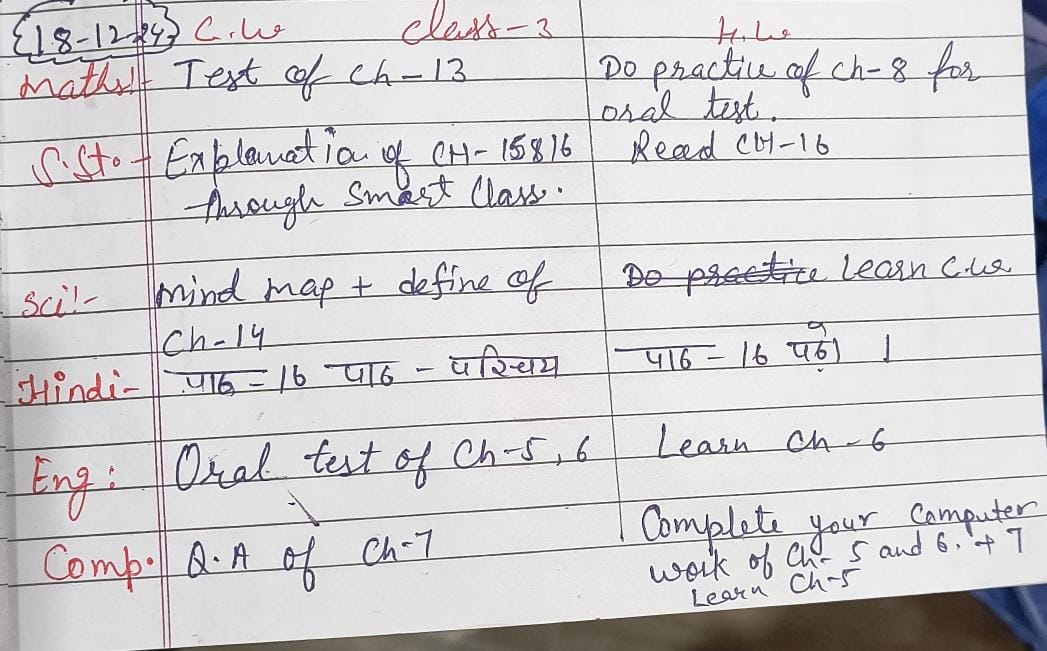 {18-12-24} C.W Class-3 H.W
Maths:- Test of Ch-13 Do practice of ch-8 for
oral test.
S.St:- Explanation of CH-15&16 Read CH-16
through Smart Class.
Sci:- Mind map + define of Do practice Learn C.W
Ch-14
Hindi- पाठ = 16 पाठ - परिचय पाठ = 16 पढ़ो ।
Eng: Oral test of Ch-5, 6 Learn Ch-6
Comp. Q.A of Ch-7 Complete your Computer
work of Ch- 5 and 6. + 7
Learn Ch-5